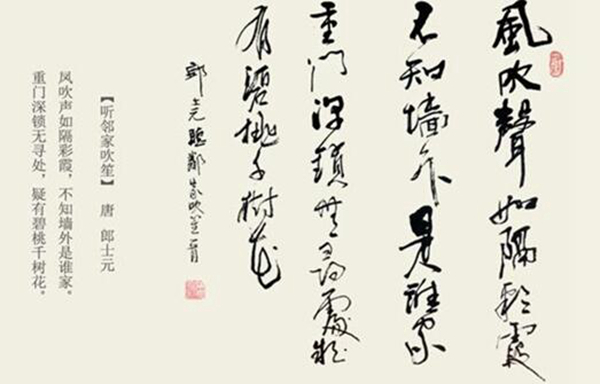 風吹聲如隔彩霞
不知墙外是誰家
重門深鎖無尋處疑
有碧桃千樹花
郎士元聽鄰家吹笙
【听邻家吹笙】 唐 郎士元
凤吹声如隔彩霞,不知墙外是谁家。
重门深锁无寻处,疑有碧桃千树花。